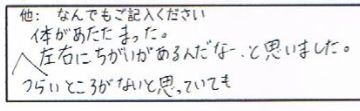 他: なんでもご記入ください
体があたたまった。
左右にちがいがあるんだなー、と思いました。
つらいところがないと思っていても